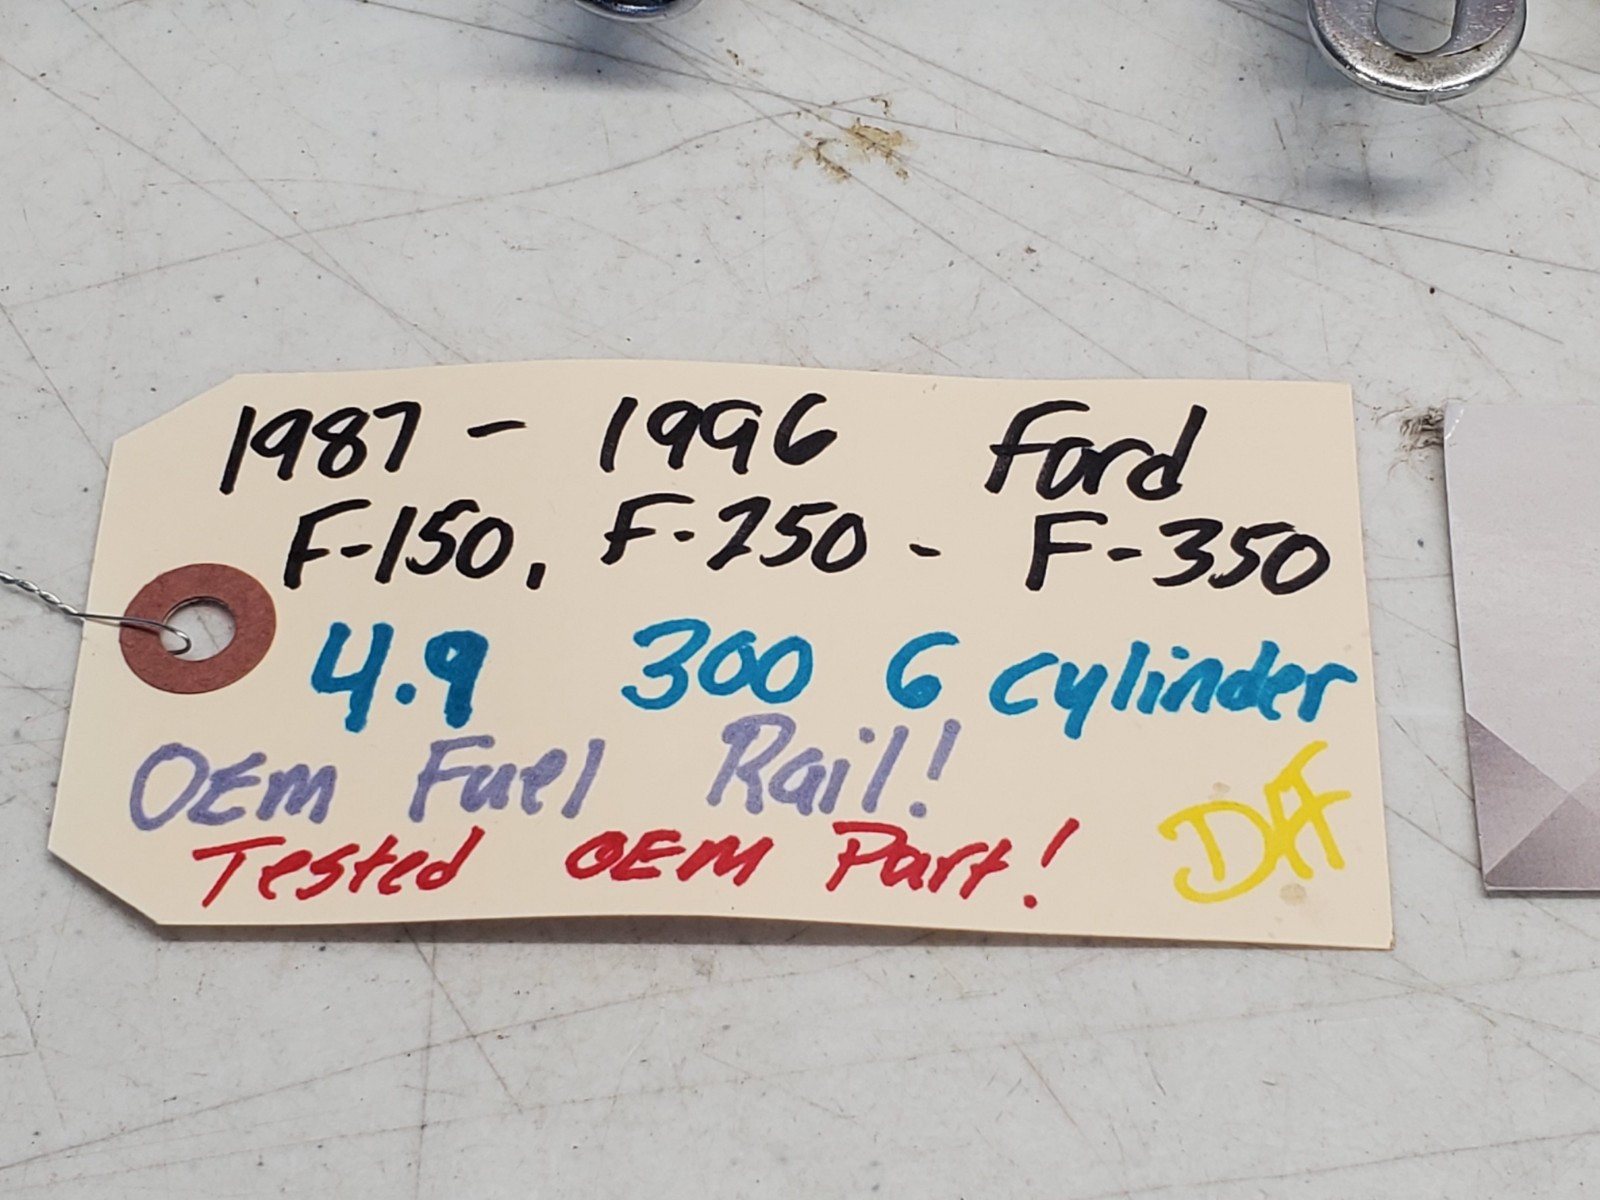 1987 - 1996 Ford
F-150, F-250 - F-350
4.9 300 6 cylinder
OEM Fuel Rail!
Tested OEM Part!